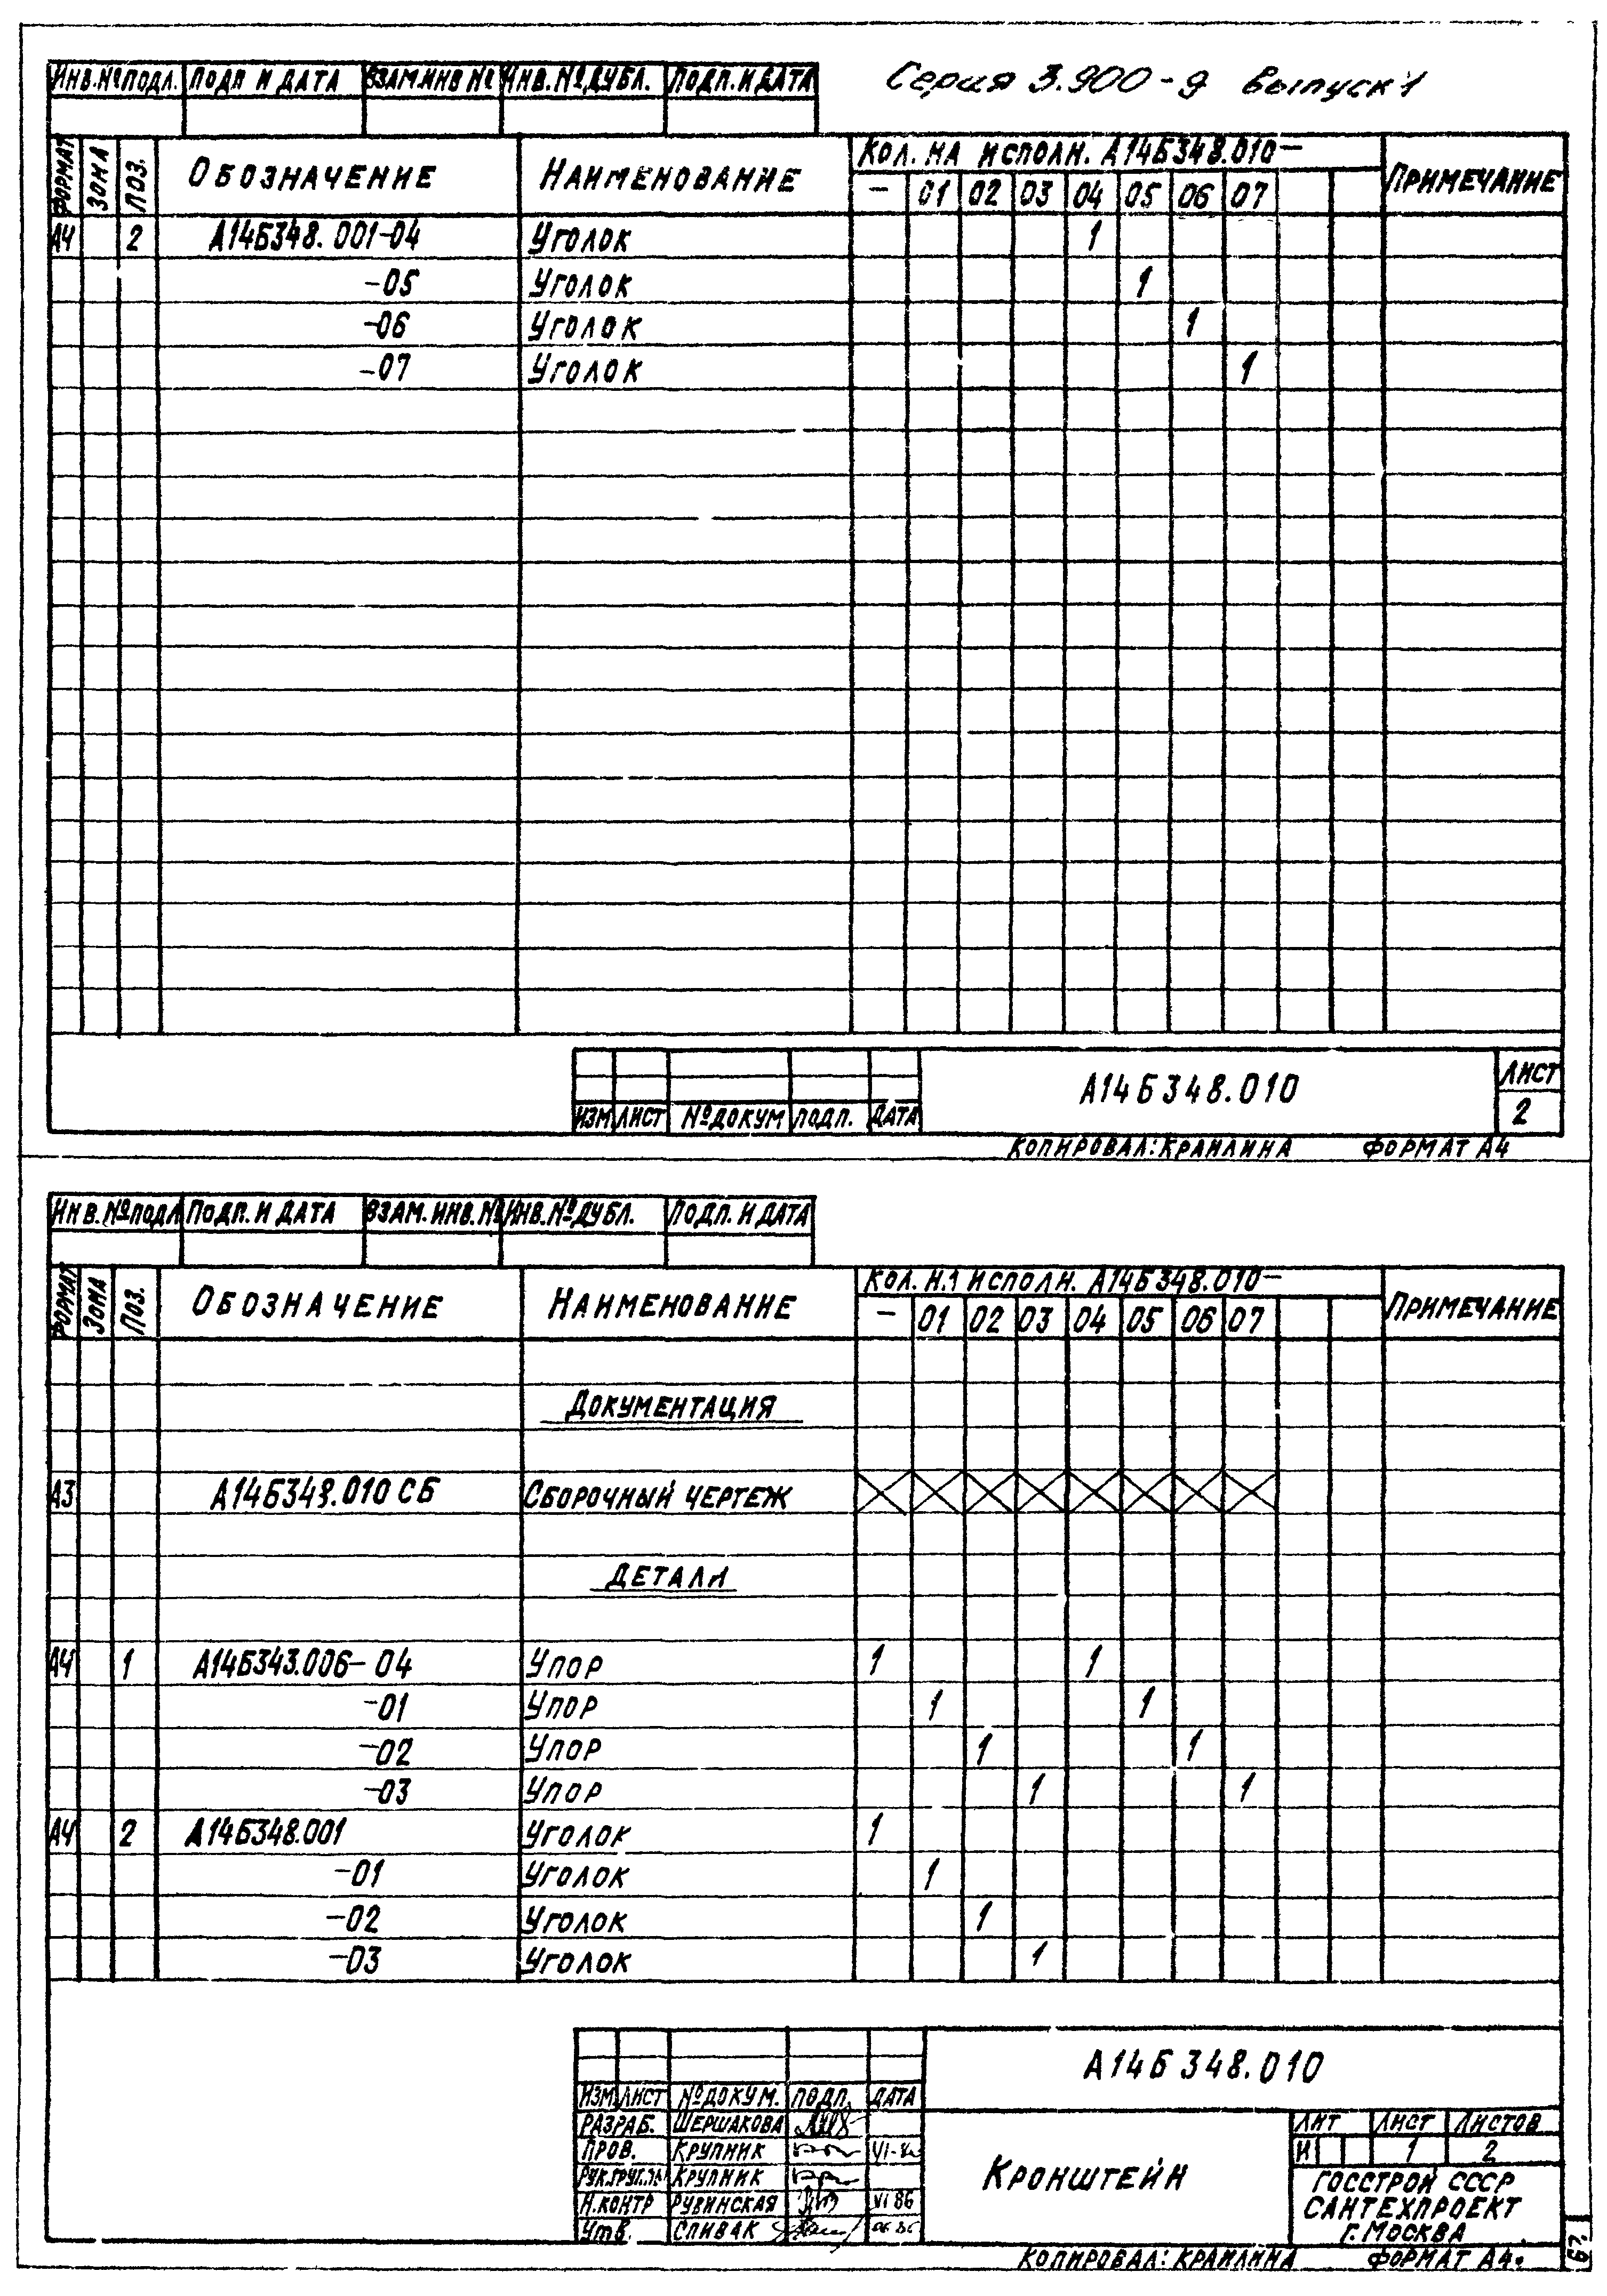 Серия 3.900-9 выпуск 1
Инв.№подл. Подп и дата Взам.инв № Инв.№дубл. Подп.и дата
Формат Зона Поз. Обозначение Наименование Кол. на исполн. А14Б348.010— Примечание
— 01 02 03 04 05 06 07
А4 2 А14Б348.001-04 Уголок 1
-05 Уголок 1
-06 Уголок 1
-07 Уголок 1
А14Б348.010
Лист
2
Изм Лист №докум подп. Дата
Копировал: Краилина Формат А4
Инв.№подл Подп. и дата Взам. инв.№ Инв.№дубл. Подп. и дата
Формат Зона Поз. Обозначение Наименование Кол. на исполн. А14Б348.010— Примечание
— 01 02 03 04 05 06 07
Документация
А3 А14Б348.010 СБ Сборочный чертеж
Детали
А4 1 А14Б343.006-04 Упор 1 1
-01 Упор 1 1
-02 Упор 1 1
-03 Упор 1 1
А4 2 А14Б348.001 Уголок 1
-01 Уголок 1
-02 Уголок 1
-03 Уголок 1
А14Б348.010
Изм Лист №докум. подп. Дата
Разраб. Шершакова
Пров. Крупник
Крупник
Н.контр Рувинская VI 86
Утв. Спивак
Кронштейн
Лит Лист Листов
И 1 2
Госстрой СССР
Сантехпроект
г.Москва
Копировал: Краилина Формат А4.
67